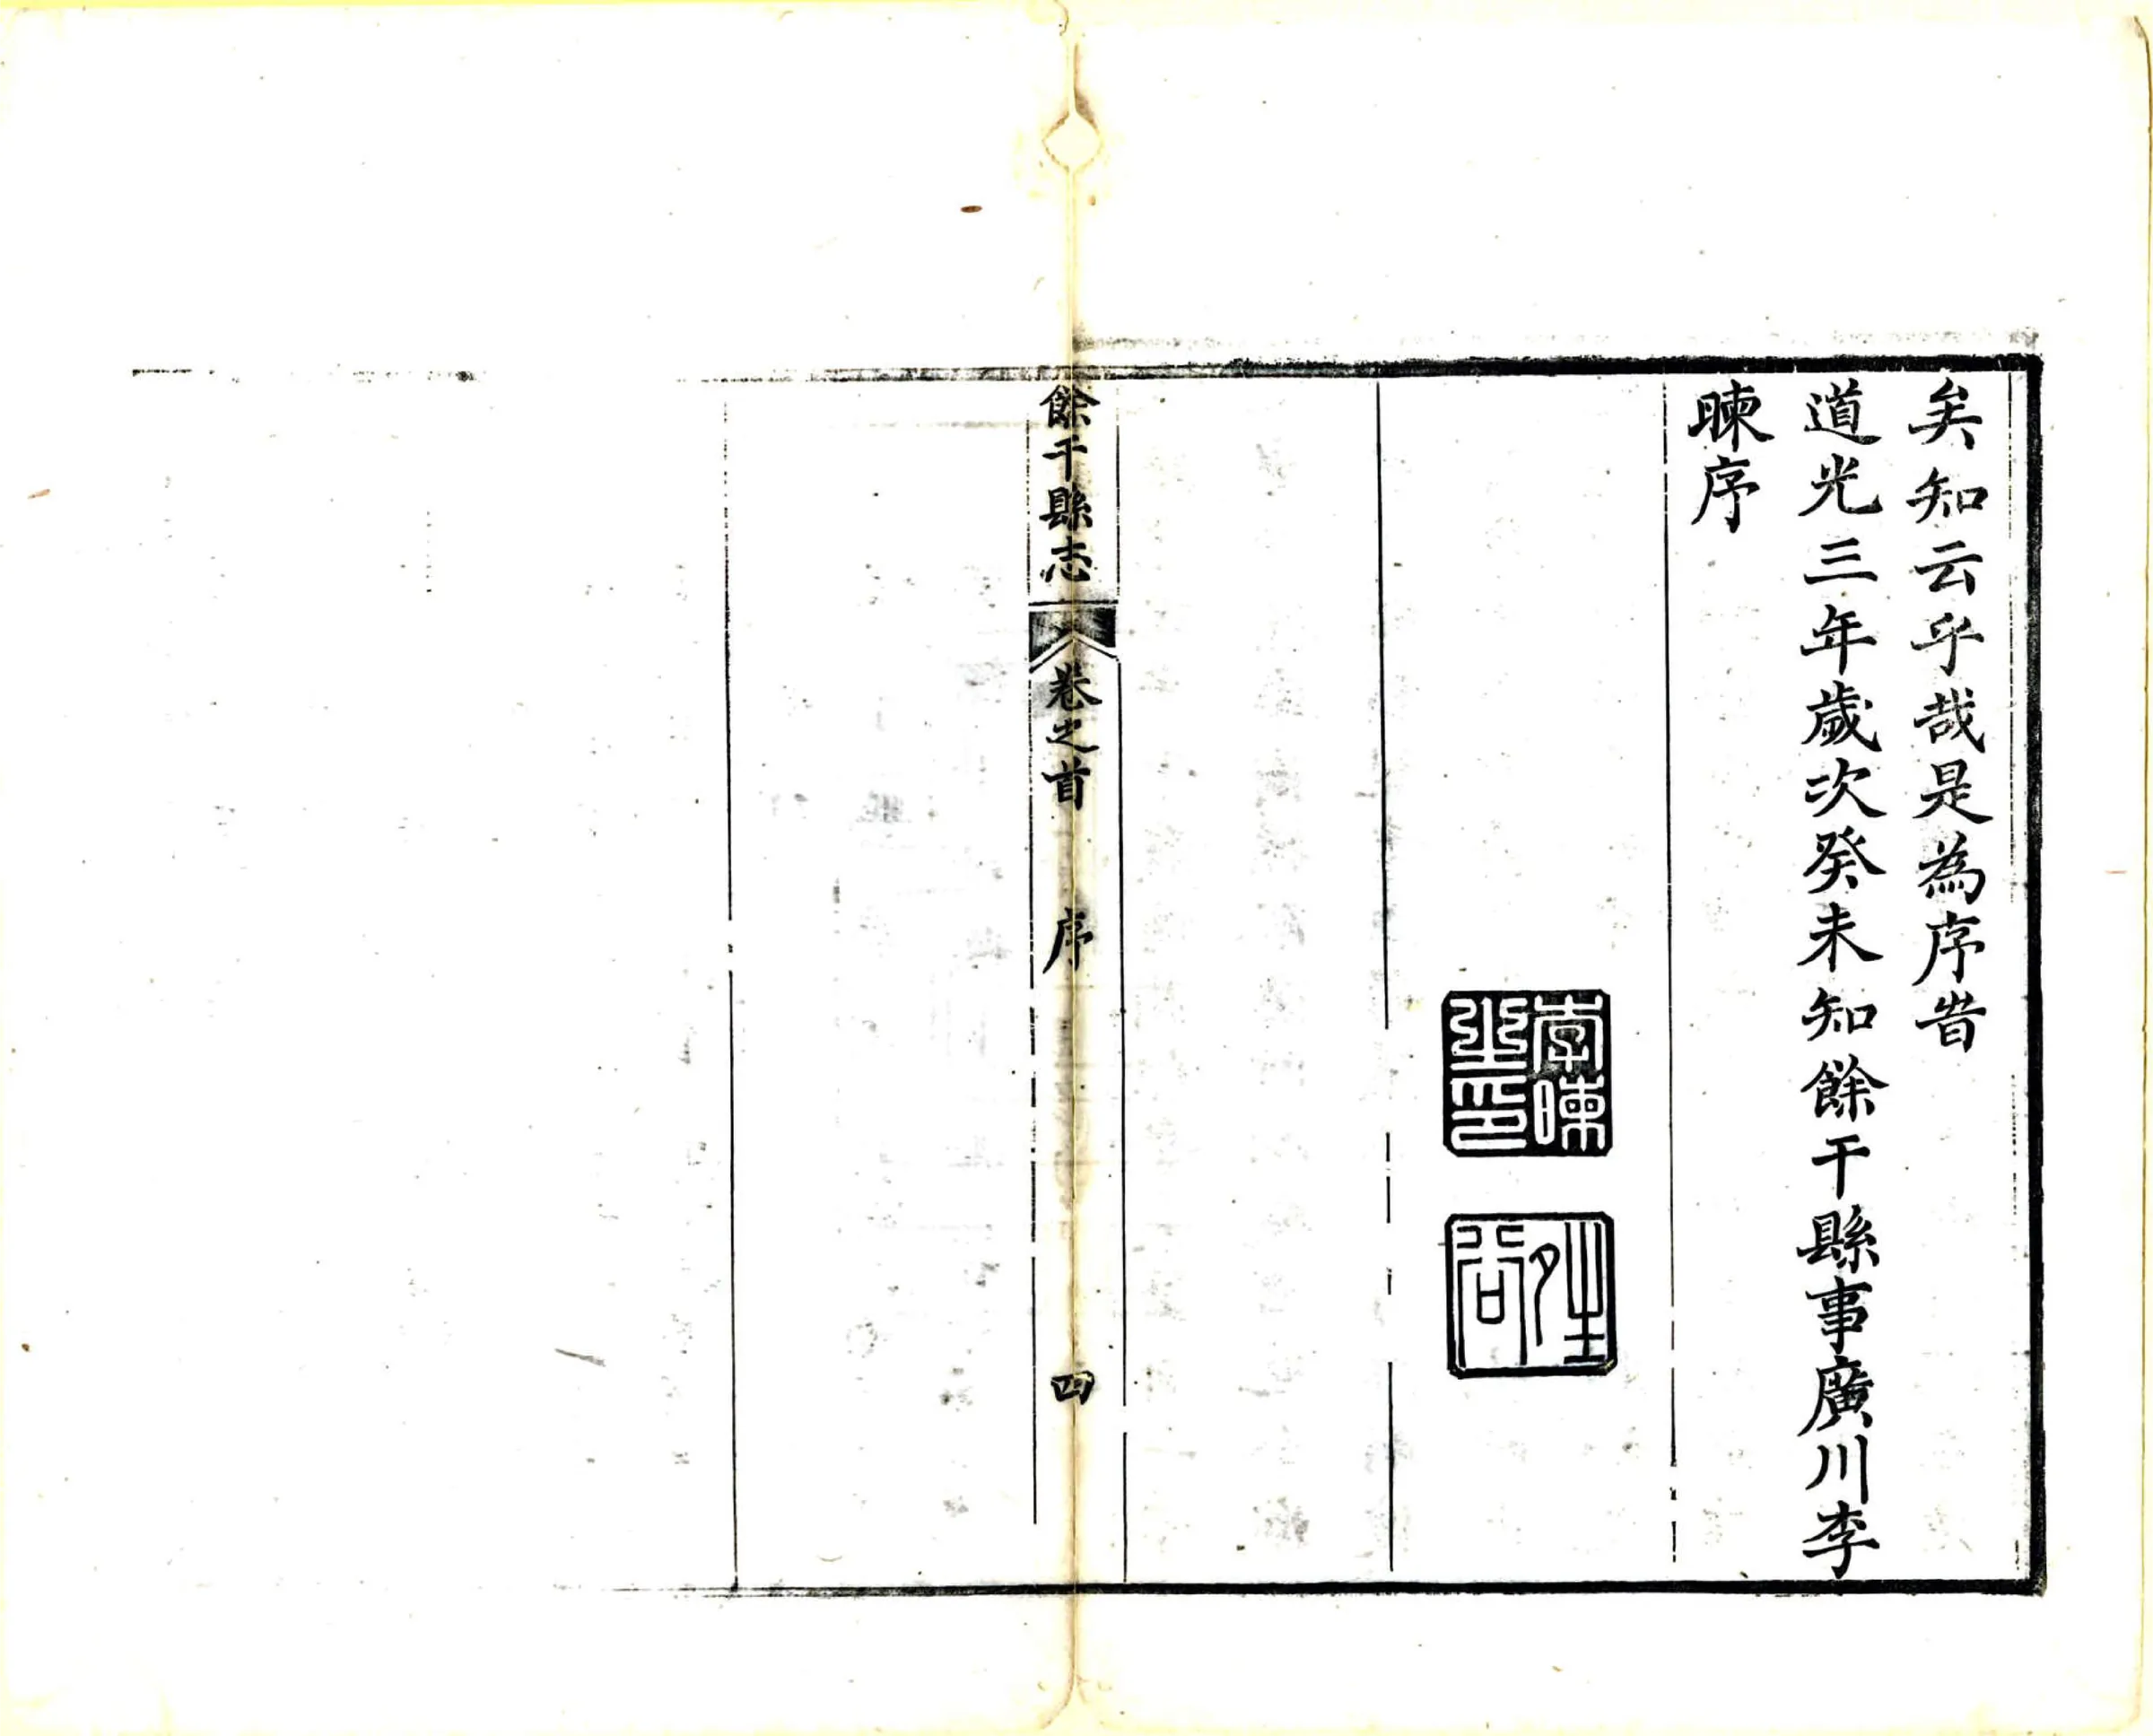 矣知云乎哉是為序旹
道光三年歲次癸未知餘干縣事廣川李
暕序
李暕之印
餘干縣志 卷之首 序 四